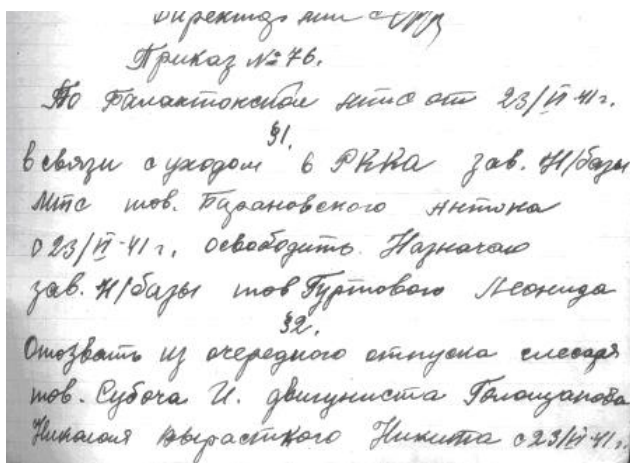 Директор мтс
Приказ № 76.
По Балахтонской мтс от 23/VI-41г.
§1.
В связи с уходом в РККА зав. Н/базы
мтс тов. Бурановского Антона
с 23/VI-41г. освободить. Назначаю
зав. Н/базы тов Гуртового Леонида
§2.
Отозвать из очередного отпуска слесаря
тов. Субоча И. двигуниста Голощапова
Николая Никита с 23/VI-41г.